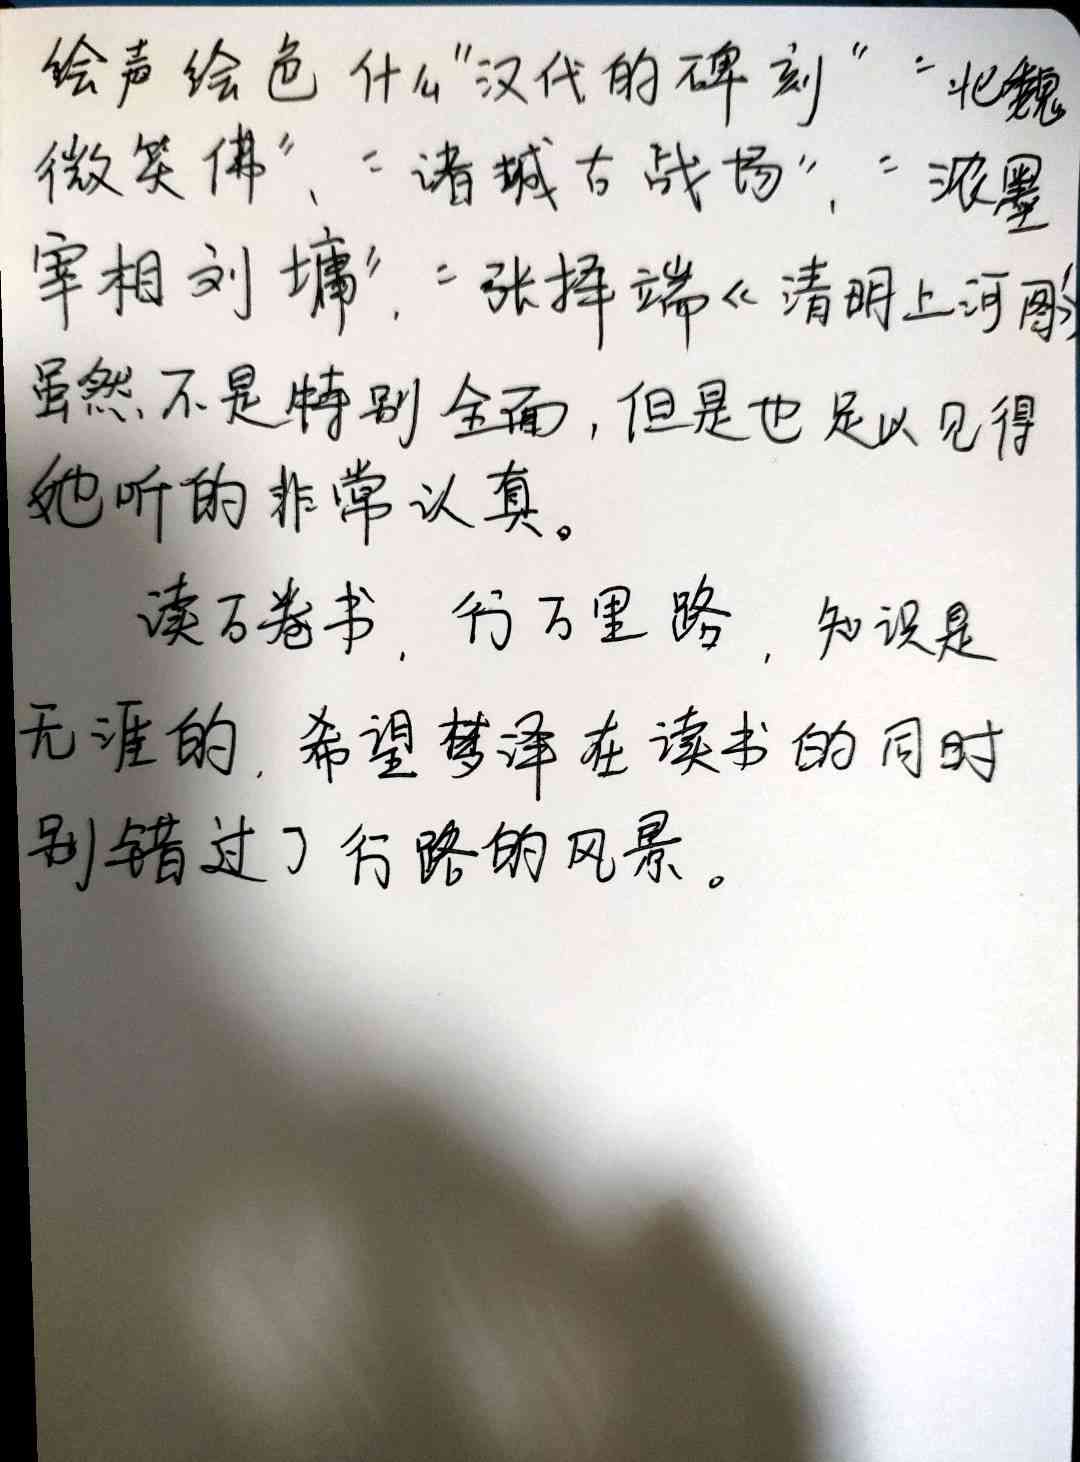 绘声绘色什么“汉代的碑刻”“北魏
微笑佛”、“诸城古战场”,“浓墨
宰相刘墉”,“张择端《清明上河图》
虽然不是特别全面,但是也足以见得
她听的非常认真。
读万卷书,行万里路,知识是
无涯的,希望梦泽在读书的同时
别错过了行路的风景。